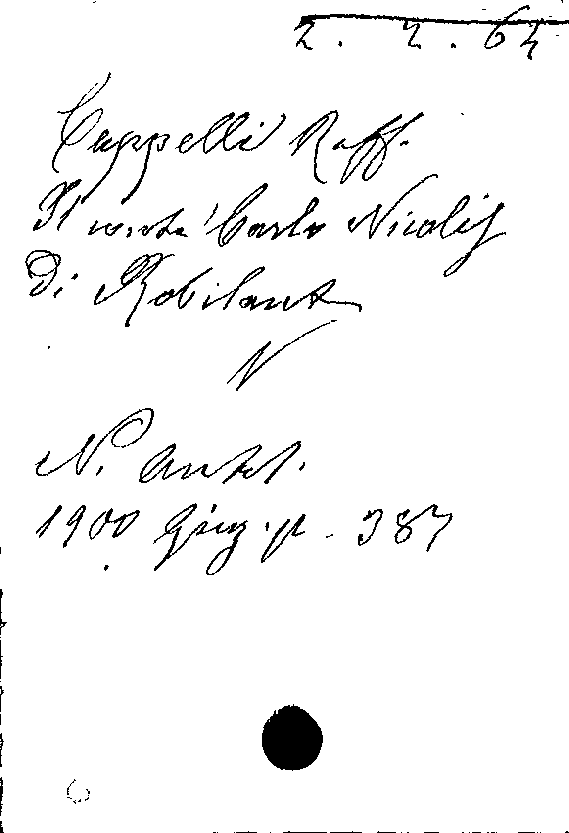 2. 2. 64
Cappelli Raff.
Il conte Carlo Nicolis
Di Robilant
N
N. Antol.
1900 Giug. p. 387